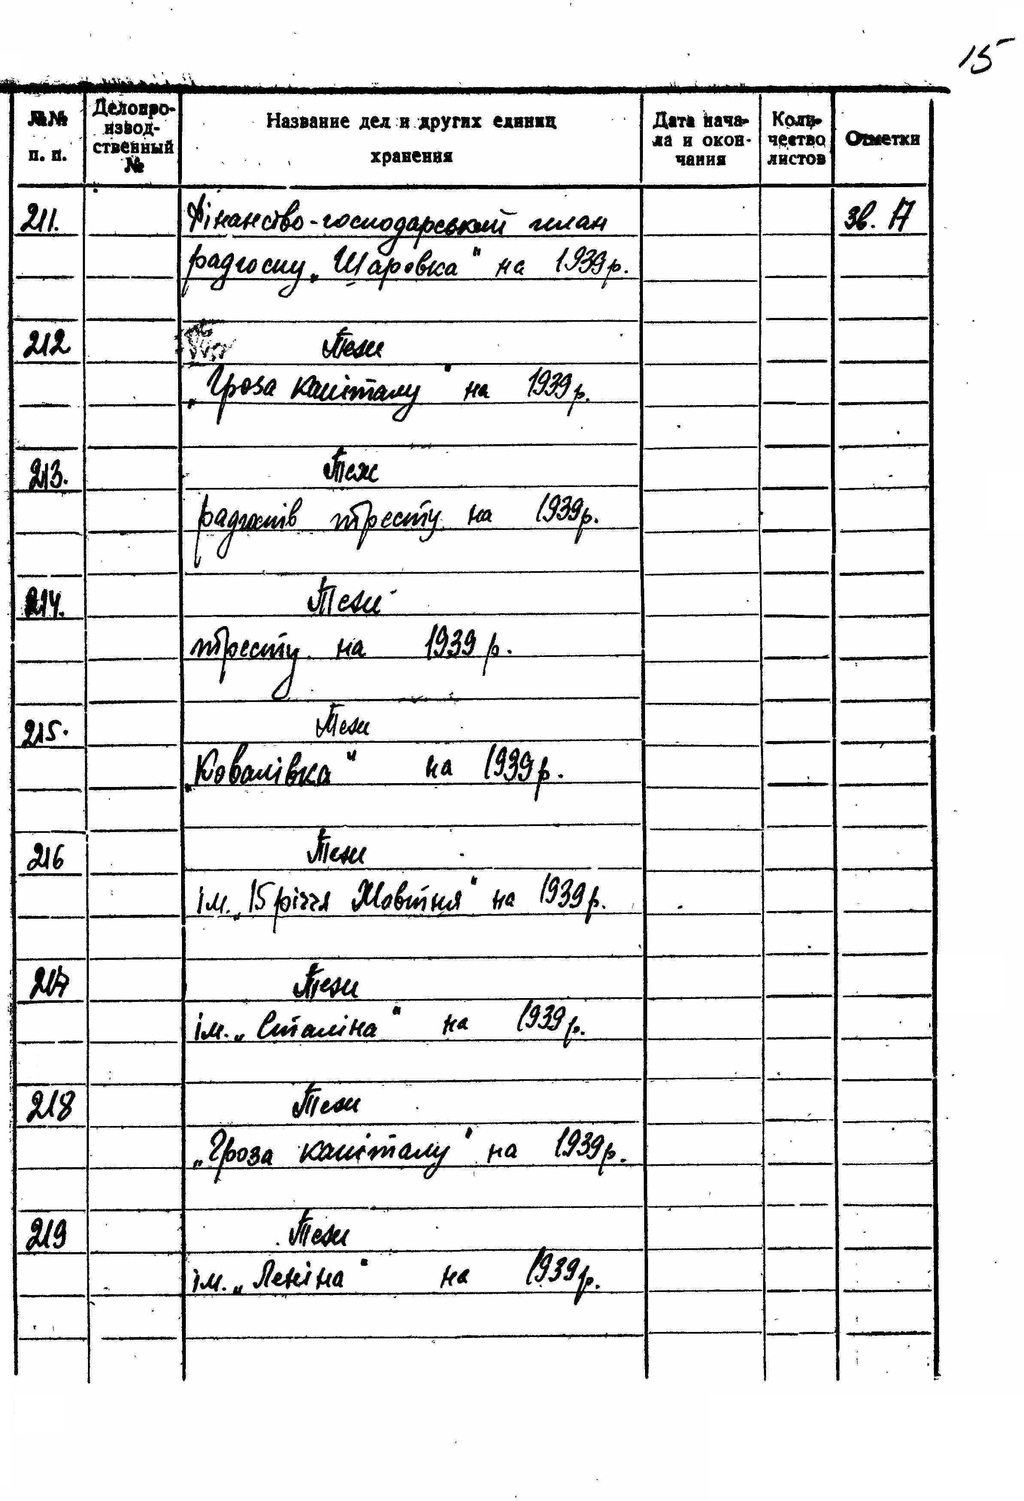 15
№№ п. п.
Делопроизводственный №
Название дел и других единиц хранения
Дата начала и окончания
Количество листов
Отметки
211. Фінансово-господарський план зв. П
радгоспу „Шаровка" на 1939р.
212 Тези
„Гроза капіталу" на 1939р.
213. Теж
радгоспів тресту на 1939р.
214. Тези
тресту на 1939р.
215. Тези
„Ковалівка" на 1939р.
216 Тези
ім. „15 річчя Жовтня" на 1939р.
217 Тези
ім. „Сталіна" на 1939р.
218 Тези
„Гроза капіталу" на 1939р.
219 Тези
ім. „Леніна" на 1939р.